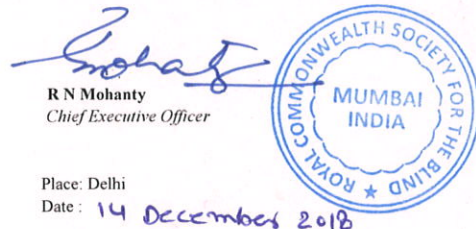 R N Mohanty
Chief Executive Officer
ROYAL COMMONWEALTH SOCIETY FOR THE BLIND
MUMBAI
INDIA
Place: Delhi
Date : 14 December 2018